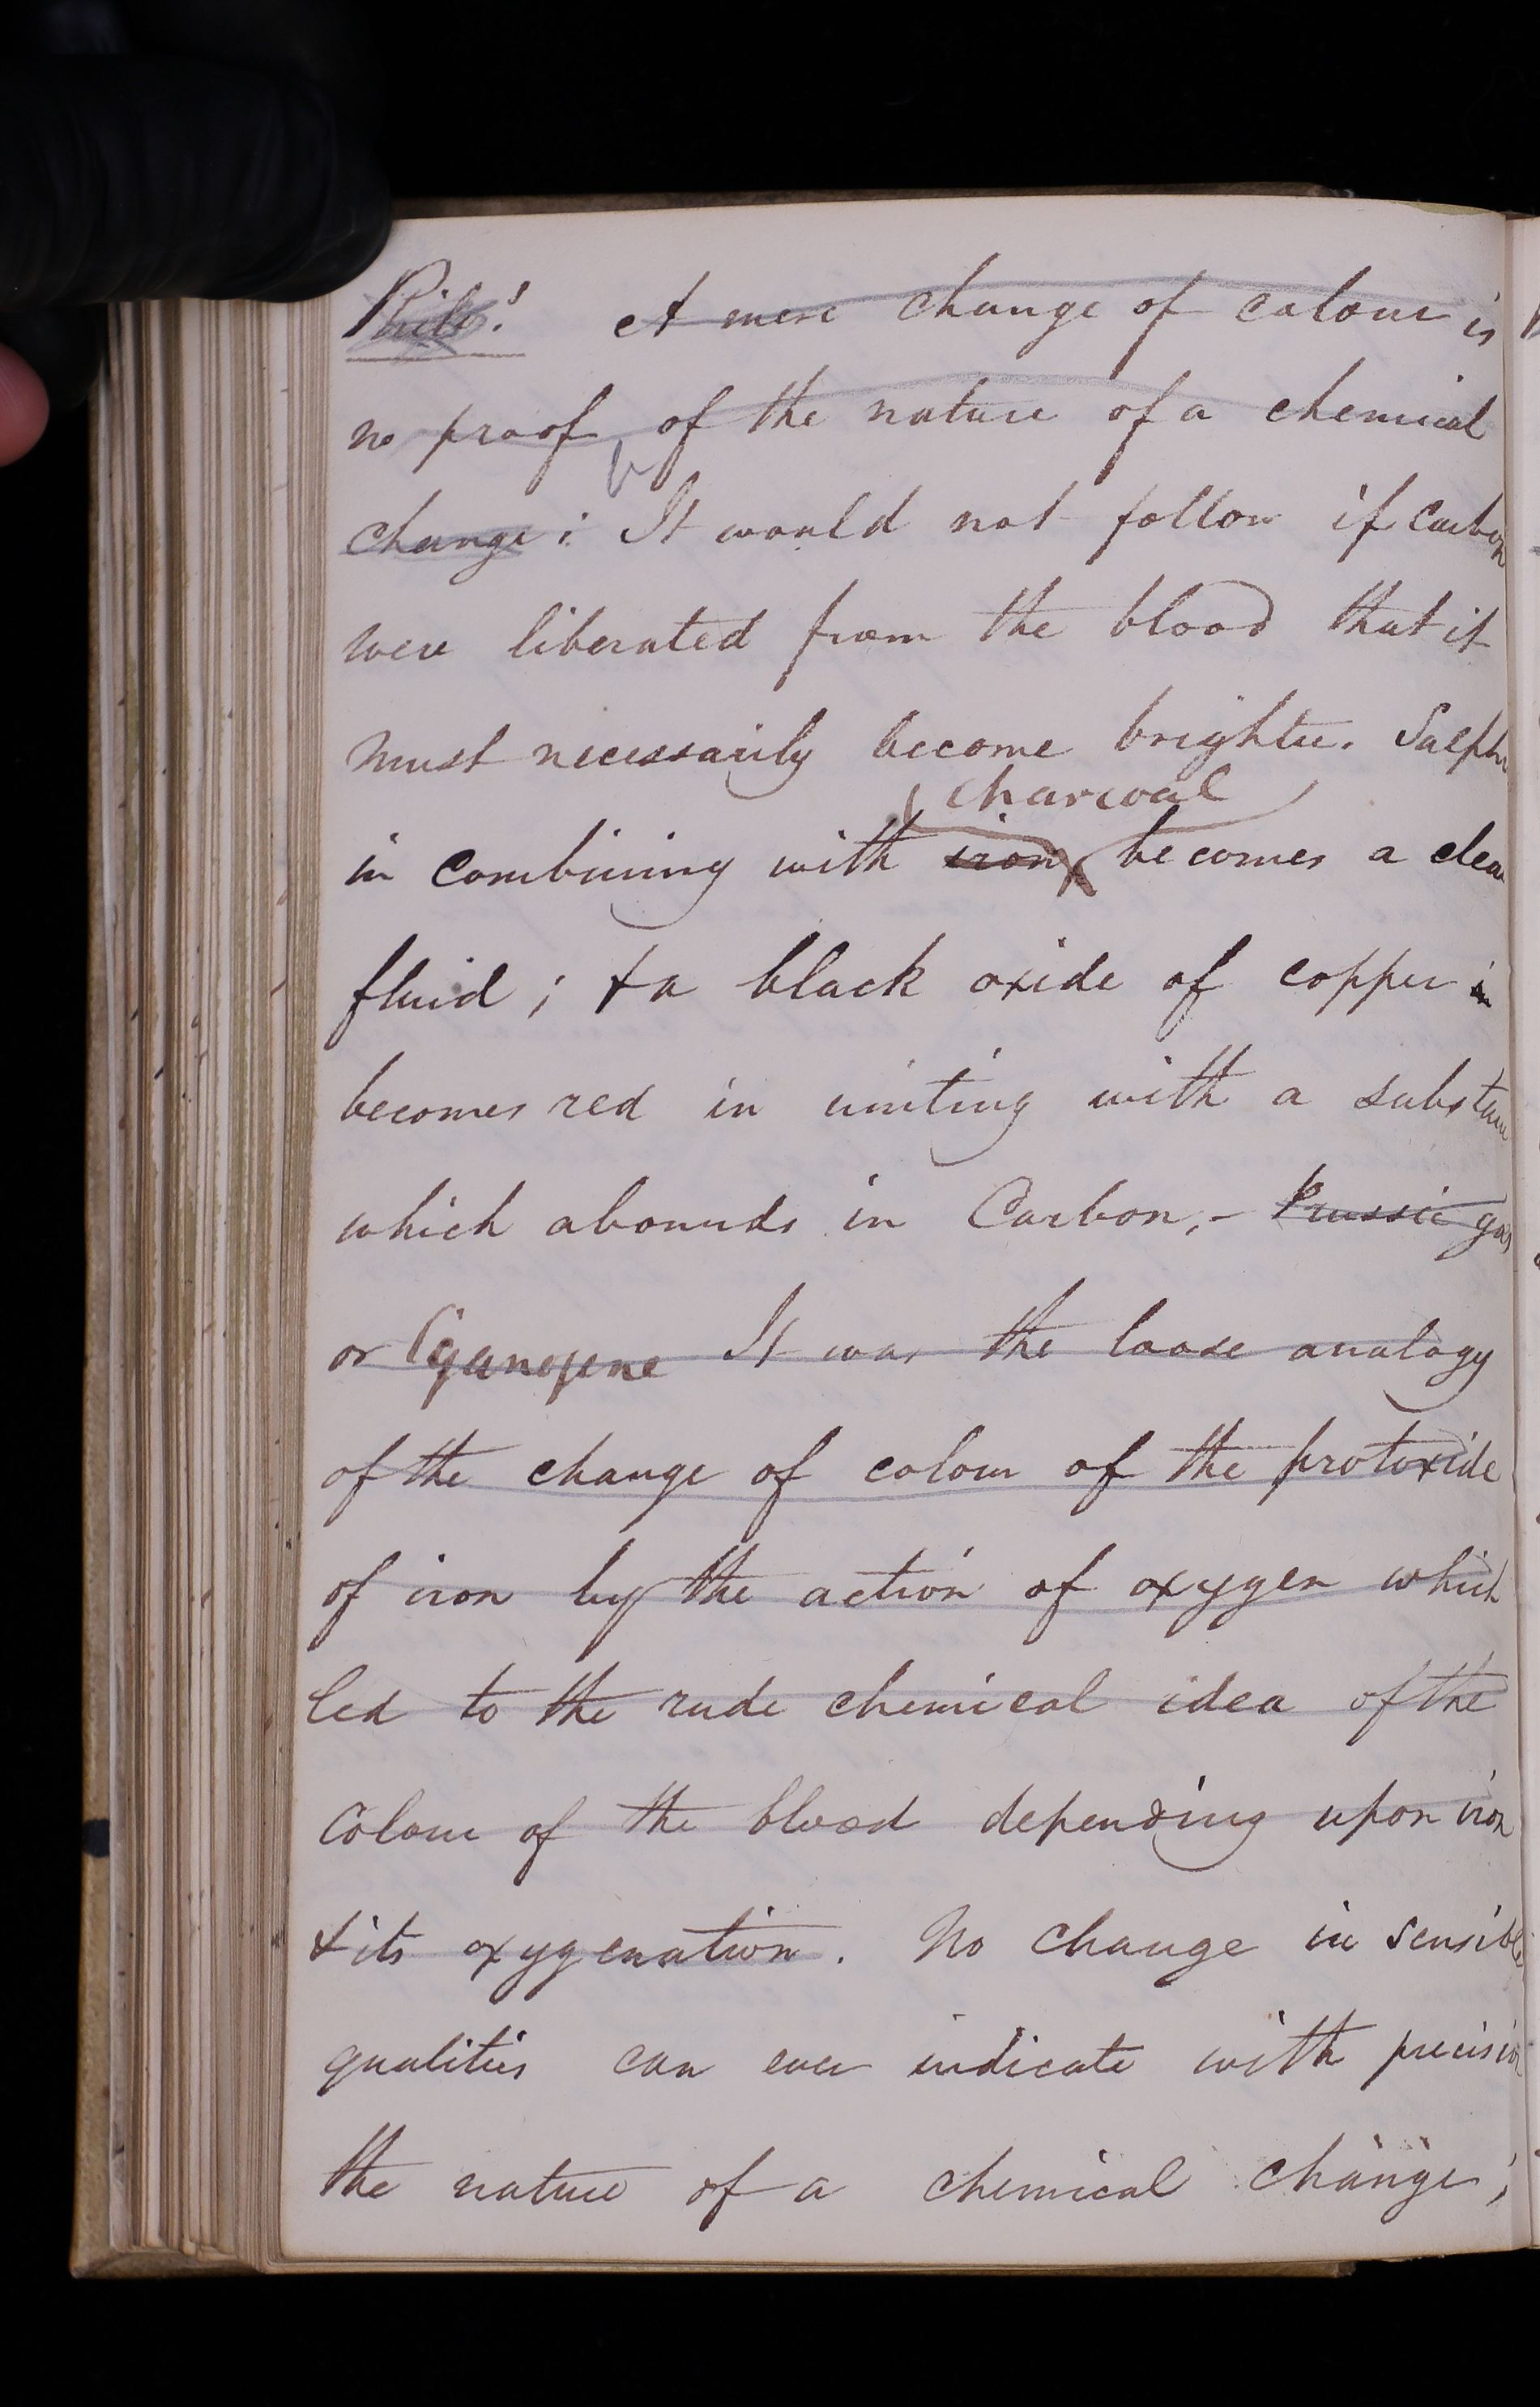 Phil:! A mere change of colour is
no proof of the nature of a chemical
change; It would not follow if Carbon
were liberated from the blood that it
must necessarily become brighter. Sulphu
charcoal
in combining with iron becomes a clear
fluid; & a black oxide of copper in
becomes red in uniting with a substan
which abounds in Carbon,- Prussic gas
or Cyanogene It was the loose analogy
of the change of colour of the protoxide
of iron by the action of oxygen which
led to the rude chemical idea of the
colour of the blood depending upon iron
& its oxygenation. No change in sensible
qualities can ever indicate with precision
the nature of a chemical change;